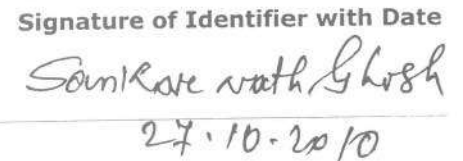 Signature of Identifier with Date
Sankar nath Ghosh
27.10.2010